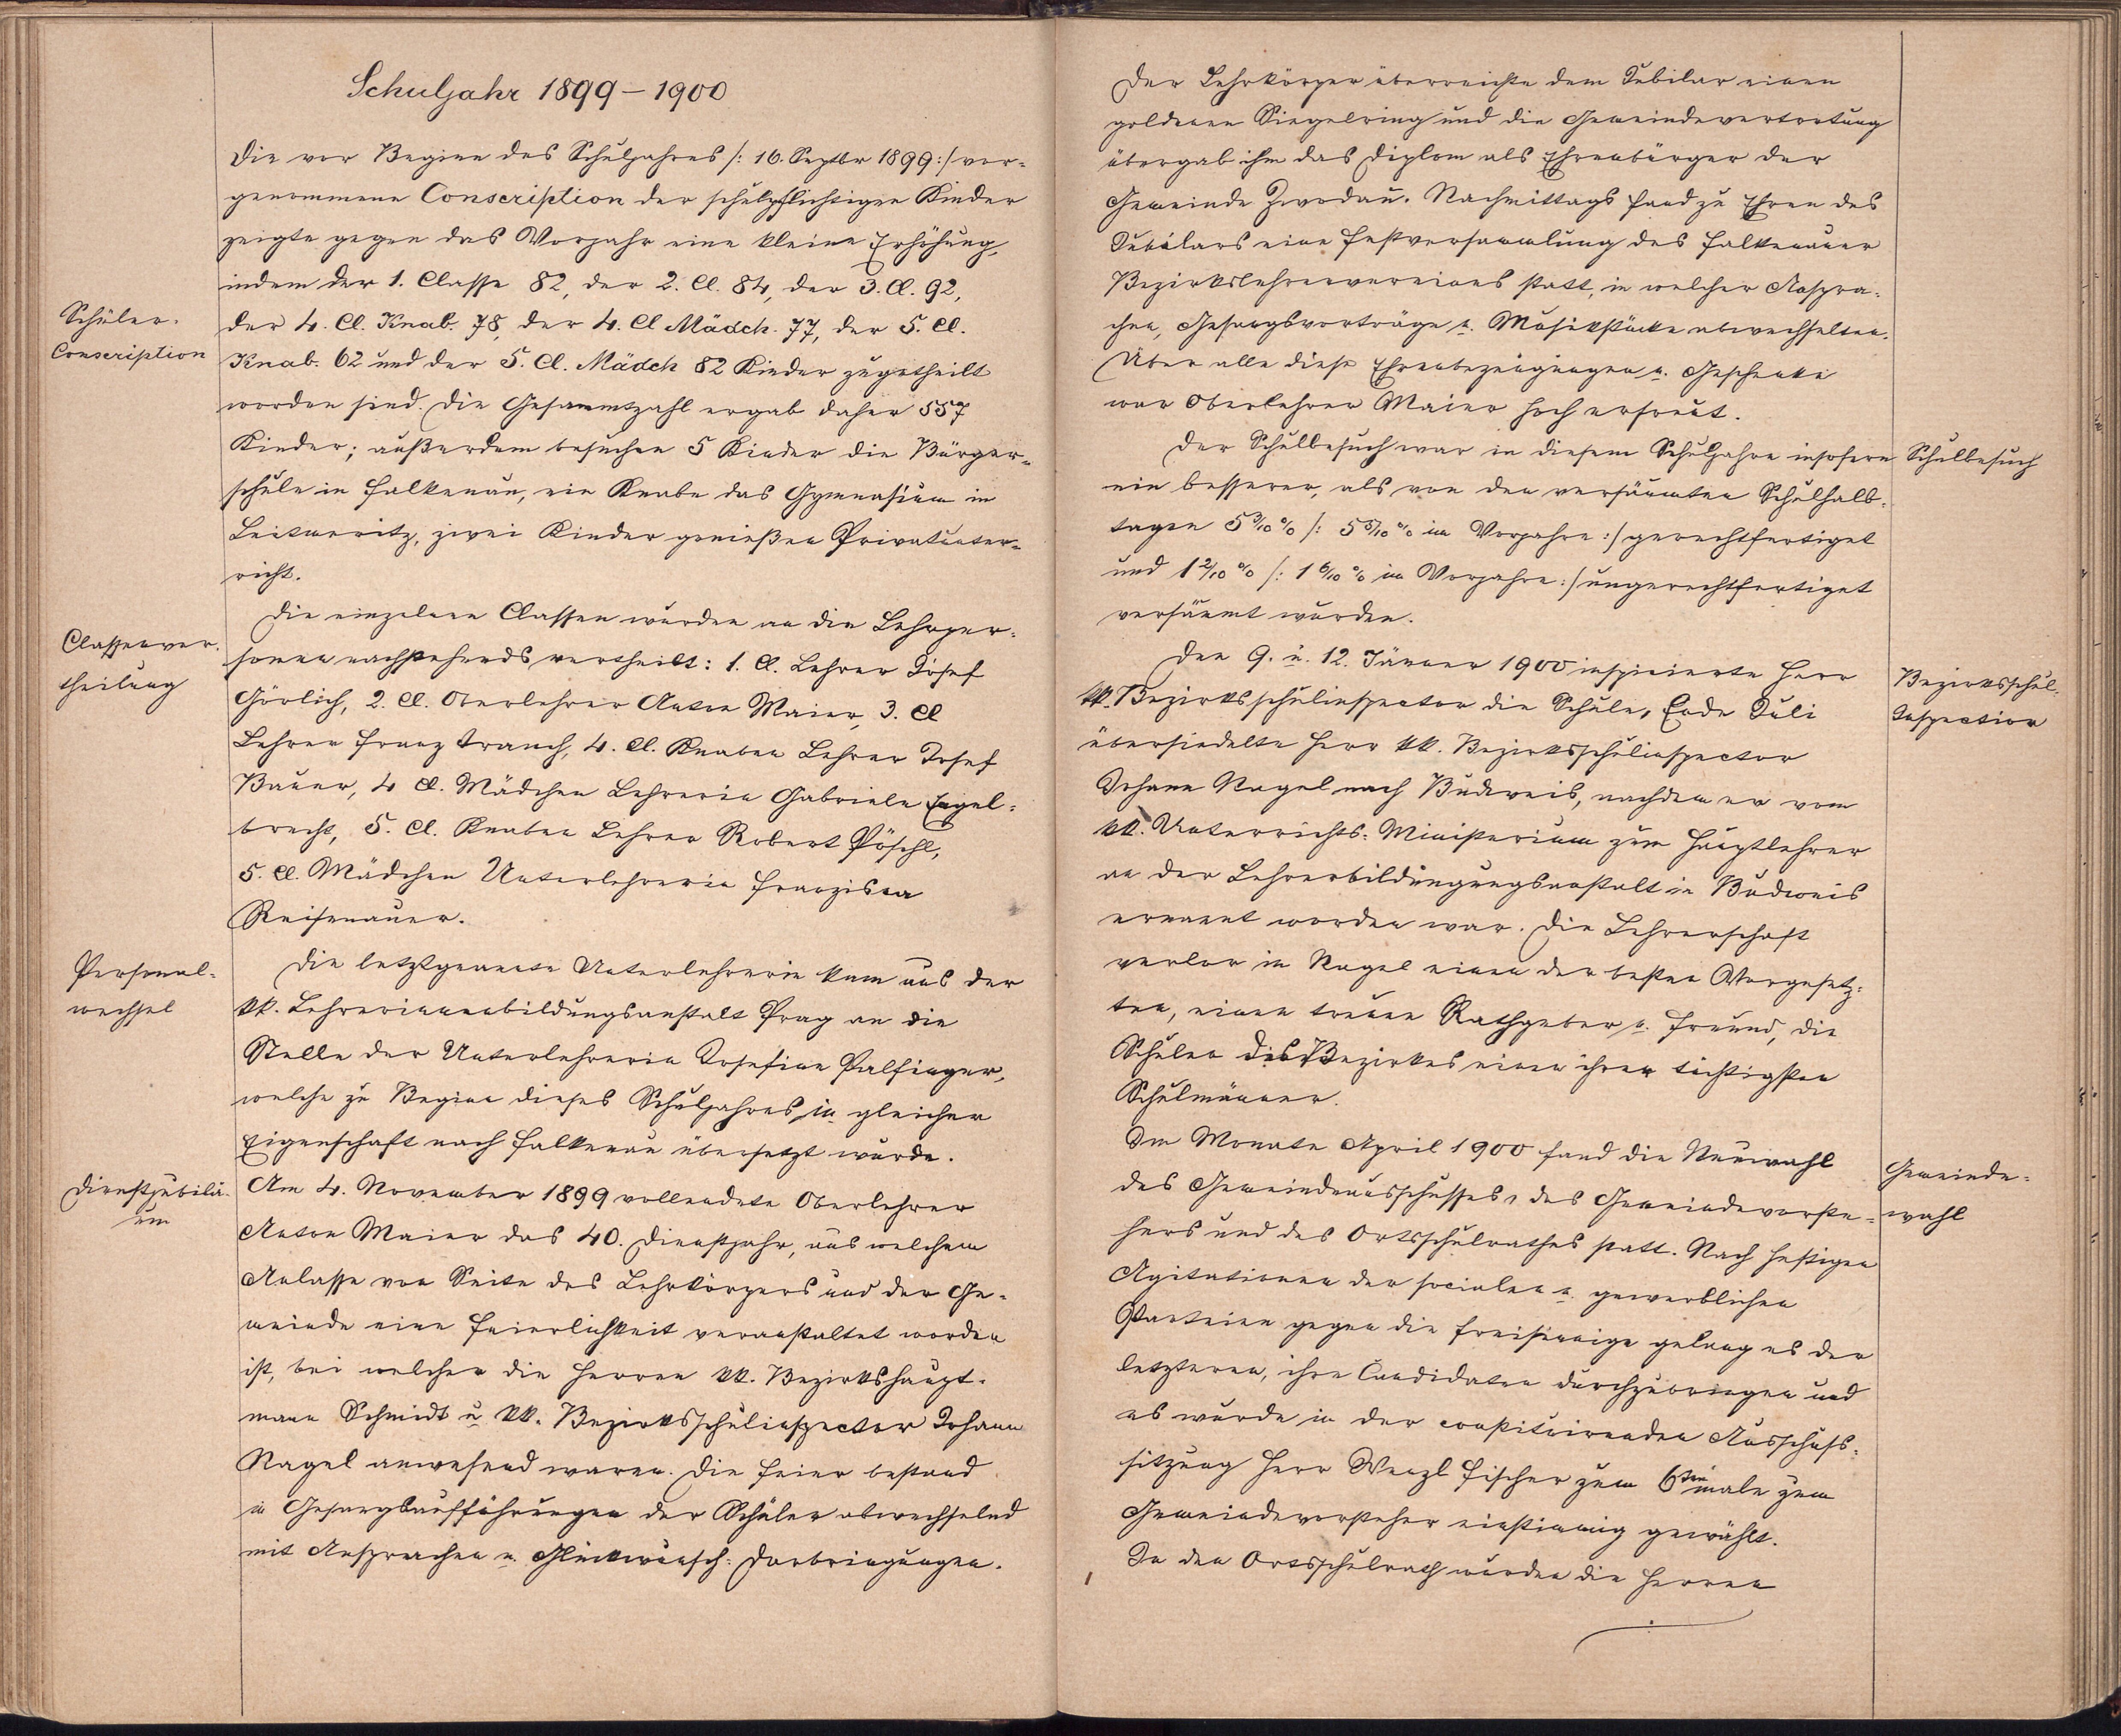 Schuljahr 1899 – 1900
Die vor Beginn des Schuljahres /: 16. Septbr 1899 :/ vor-
genommene Conscription der schulpflichtigen Kinder
zeigte gegen das Vorjahr eine kleine Erhöhung,
indem der 1. Classe 82, der 2. Cl. 84, der 3. Cl. 92,
Schüler-
Conscription
der 4. Cl. Knab. 78, der 4. Cl Mädch. 77, der 5. Cl.
Knab. 62 und der 5. Cl. Mädch 82 Kinder zugetheilt
worden sind. Die Gesammtzahl ergab daher 557
Kinder; außerdem besuchen 5 Kinder die Bürger-
schule in Falkenau, ein Knabe das Gymnasium in
Leitmeritz, zwei Kinder genießen Privatunter-
richt.
Classenver-
theilung
Die einzelnen Classen wurden an die Lehrper-
sonen nachstehends vertheilt: 1. Cl. Lehrer Josef
Görlich, 2. Cl. Oberlehrer Anton Maier, 3. Cl
Lehrer Franz Tranch, 4. Cl. Knaben Lehrer Josef
Bauer, 4 Cl. Mädchen Lehrerin Gabriele Engel-
brecht, 5. Cl. Knaben Lehrer Robert Pöschl,
5. Cl. Mädchen Unterlehrerin Franziska
Reisenauer.
Personal-
wechsel
Die letztgenannte Unterlehrerin kam aus der
kk. Lehrerinnenbildungsanstalt Prag an die
Stelle der Unterlehrerin Josefine Palfinger,
welche zu Beginn dieses Schuljahres in gleicher
Eigenschaft nach Falkenau übersetzt wurde.
Dienstjubilä-
um
Am 4. November 1899 vollendete Oberlehrer
Anton Maier das 40. Dienstjahr, aus welchem
Anlasse von Seite des Lehrkörpers und der Ge-
meinde eine Feierlichkeit veranstaltet worden
ist, bei welcher die Herren kk. Bezirkshaupt-
mann Schmidt u. kk. Bezirksschulinspector Johann
Nagel anwesend waren. Die Feier bestand
in Gesangsaufführungen der Schüler abwechselnd
mit Ansprachen u. Glückwunsch-Darbringungen.
Der Lehrkörper überreichte dem Jubilar einen
goldenen Siegelring und die Gemeindevertretung
übergab ihm das Diplom als Ehrenbürger der
Gemeinde Zwodau. Nachmittags fand zu Ehren des
Jubilars eine Festversammlung des Falkenauer
Bezirkslehrervereines statt, in welcher Anspra-
chen, Gesangsvorträge u. Musikstücke abwechselten.
Über alle diese Ehrenbezeugungen u. Geschenke
war Oberlehrer Maier hoch erfreut.
Der Schulbesuch war in diesem Schuljahre insofern
Schulbesuch
ein besserer, als von den versäumten Schulhalb-
tagen 5 3/10 % /: 5 5/10 % im Vorjahre :/ gerechtfertiget
und 1 2/10 % /: 1 6/10 % im Vorjahre :/ ungerechtfertiget
versäumt wurden.
Den 9. u. 12. Jänner 1900 inspicierte Herr
Bezirksschul-
Inspection
kk. Bezirksschulinspector die Schule, Ende Juli
übersiedelte Herr kk. Bezirksschulinspector
Johann Nagel nach Budweis, nachdem er vom
kk. Unterrichts-Ministerium zum Hauptlehrer
an der Lehrerbildungungsanstalt in Budweis
ernannt worden war. Die Lehrerschaft
verlor in Nagel einen der besten Vorgesetz-
ten, einen treuen Rathgeber u. Freund, die
Schulen des Bezirkes einen ihrer tüchtigsten
Schulmänner.
Im Monate April 1900 fand die Neuwahl
Gemeinde-
wahl
des Gemeindeausschusses, des Gemeindevorste-
hers und des Ortsschulrathes statt. Nach heftigen
Agitationen der socialen u. gewerblichen
Parteien gegen die freisinnige gelang es der
letzteren, ihre Candidaten durchzubringen und
es wurde in der constituirenden Ausschuss-
sitzung Herr Wenzl Fischer zum 6ten male zum
Gemeindevorsteher einstimmig gewählt.
In den Ortsschulrath wurden die Herren